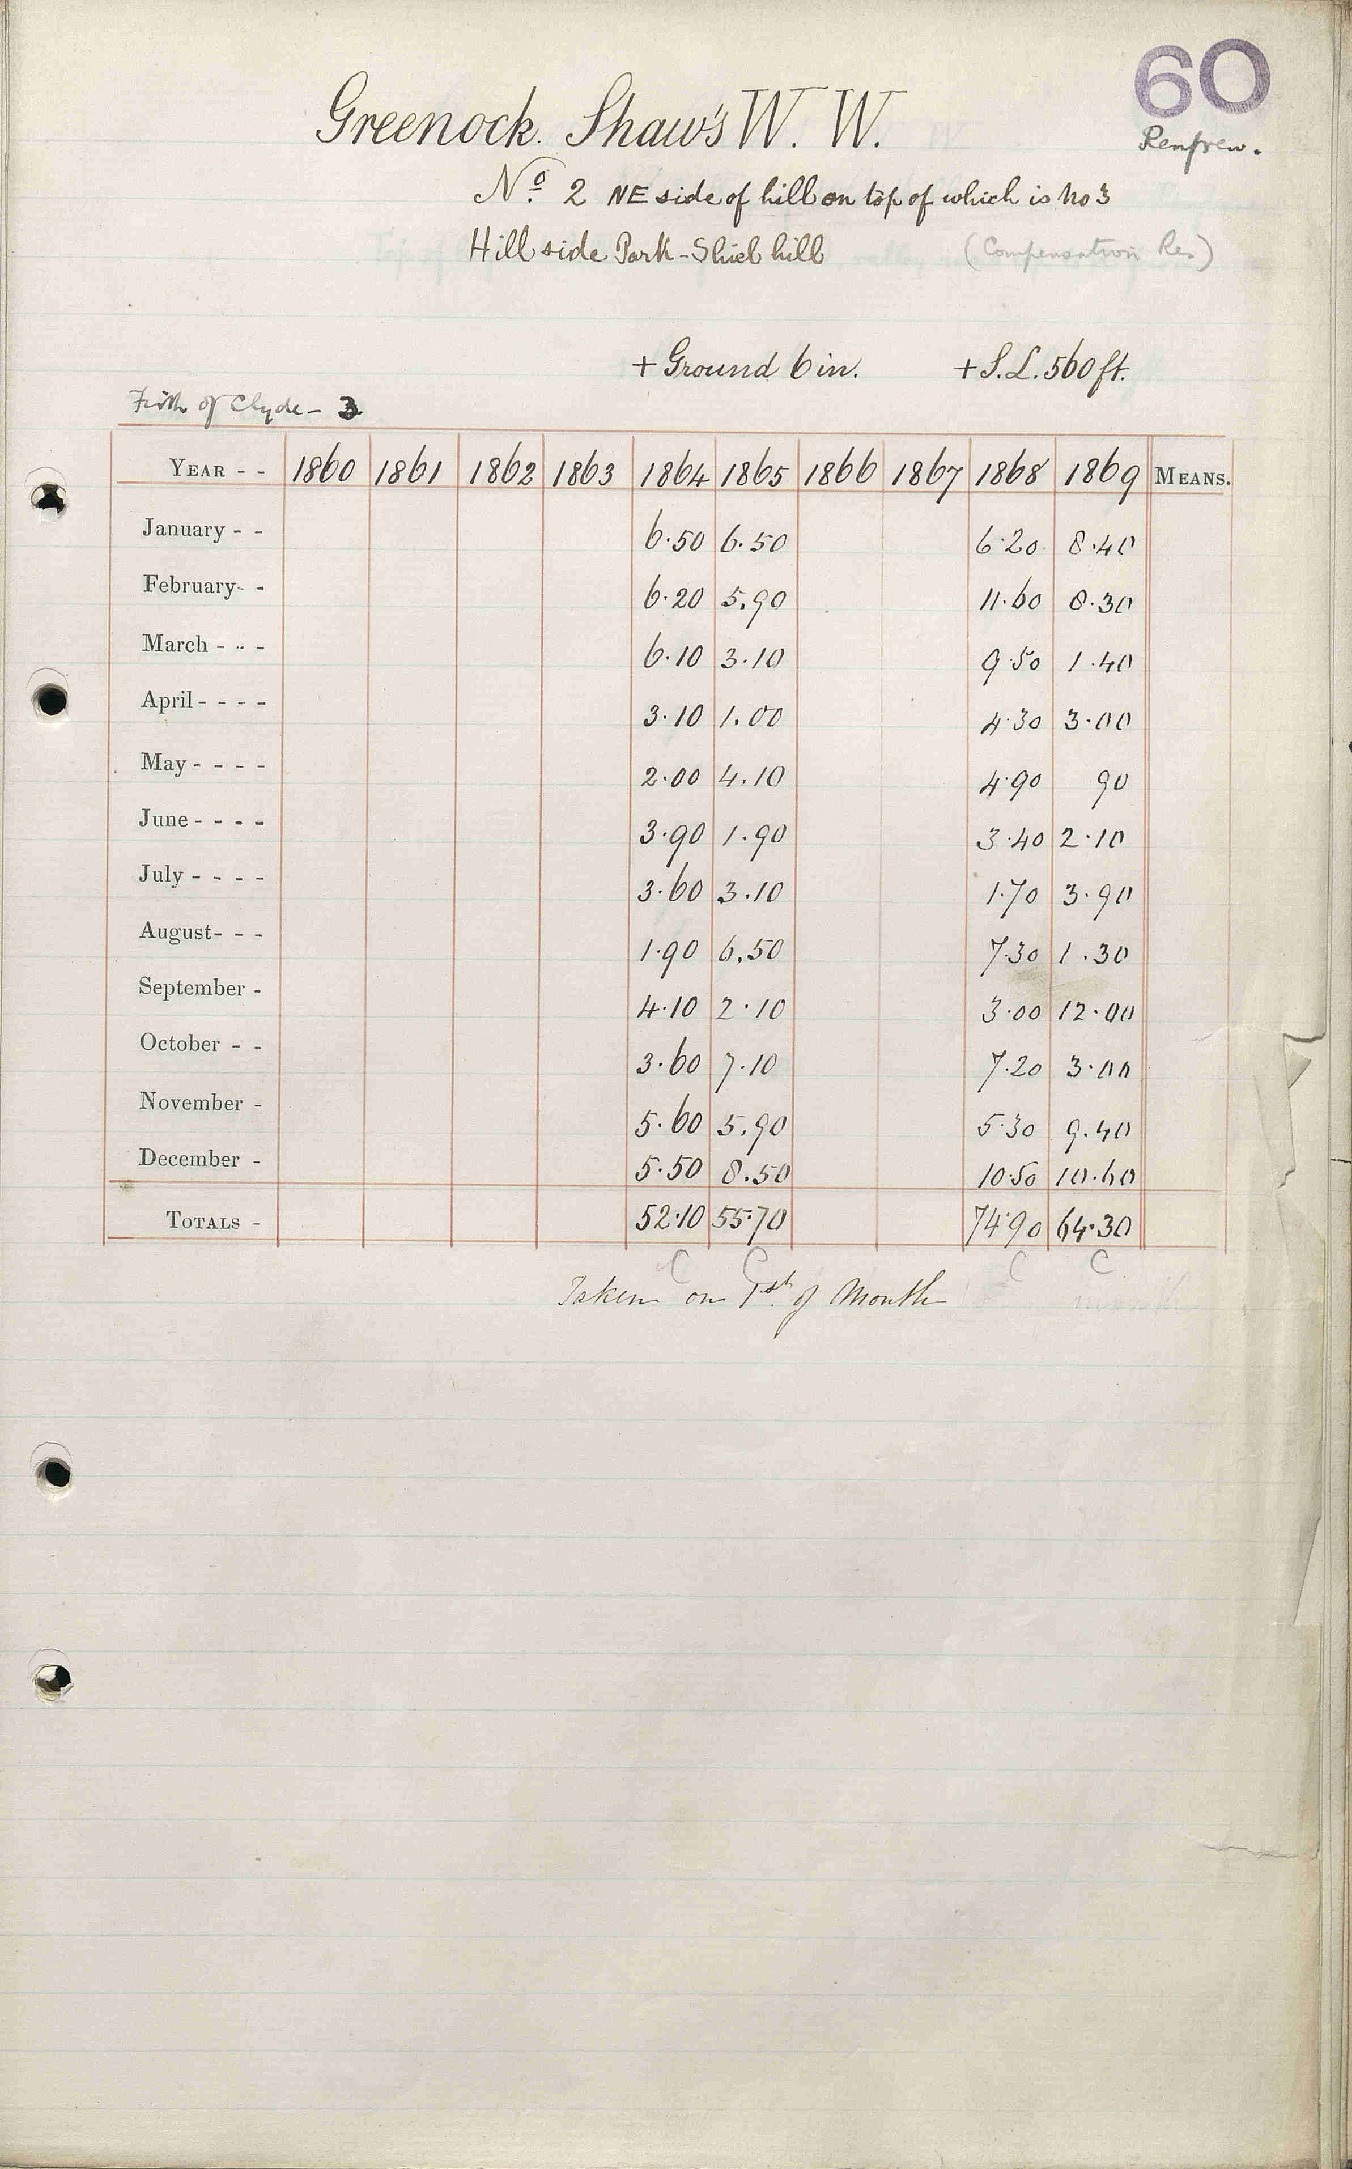 60
Renfrew.
Greenock. Shaw's W. W.
No. 2 NE side of hill on top of which is No 3
Hill side Park - Shiel hill (Compensation Res)
+ Ground 6 in. + S.L. 560 ft.
Firth of Clyde - 3
YEAR - - 1860 1861 1862 1863 1864 1865 1866 1867 1868 1869 MEANS.
January - - 6.50 6.50 6.20 8.40
February - - 6.20 5.90 11.60 8.30
March - - - 6.10 3.10 9.50 1.40
April - - - - 3.10 1.00 4.30 3.00
May - - - - 2.00 4.10 4.90 90
June - - - - 3.90 1.90 3.40 2.10
July - - - - 3.60 3.10 1.70 3.90
August - - - 1.90 6.50 7.30 1.30
September - 4.10 2.10 3.00 12.00
October - - 3.60 7.10 7.20 3.00
November - 5.60 5.90 5.30 9.40
December - 5.50 8.50 10.50 10.60
TOTALS - 52.10 55.70 74.90 64.30
C C C C
Taken on 1st of Month